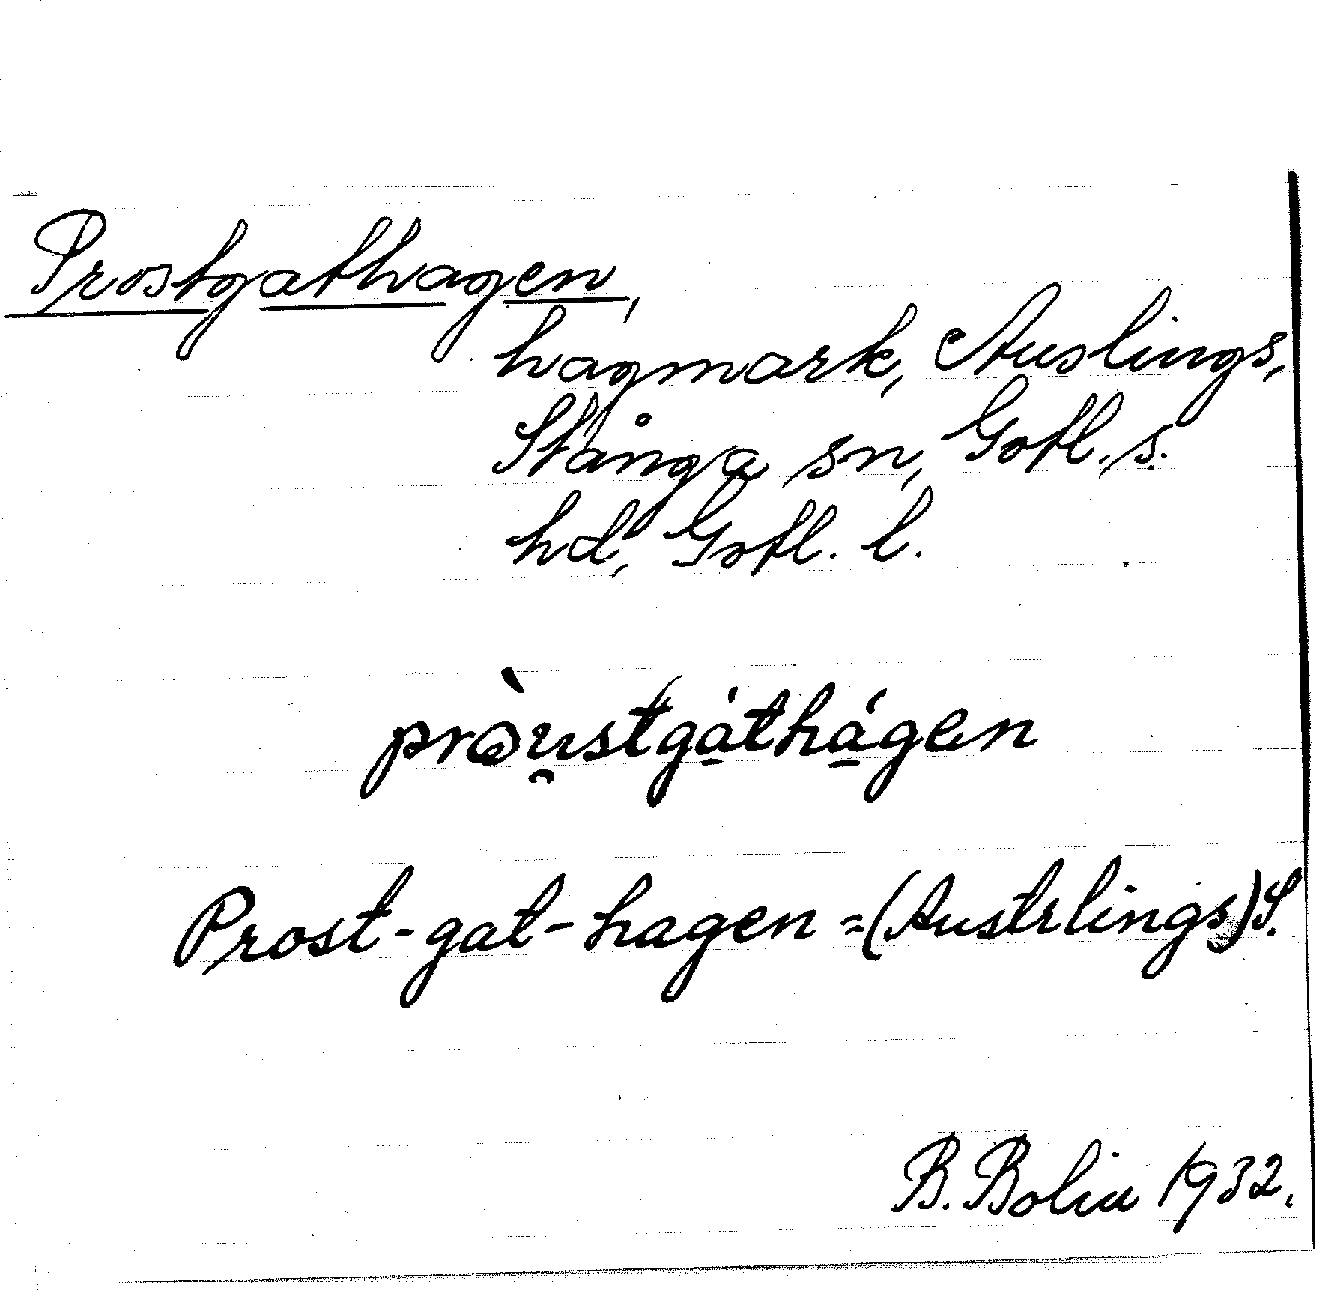 Prostgathagen,
hagmark, Auslings,
Stånga sn, Gotl. s.
hd, Gotl. l.
pròu̯stgá̱thá̱gen
Prost-gat-hagen = (Austrlings) S.
B. Bolin 1932.